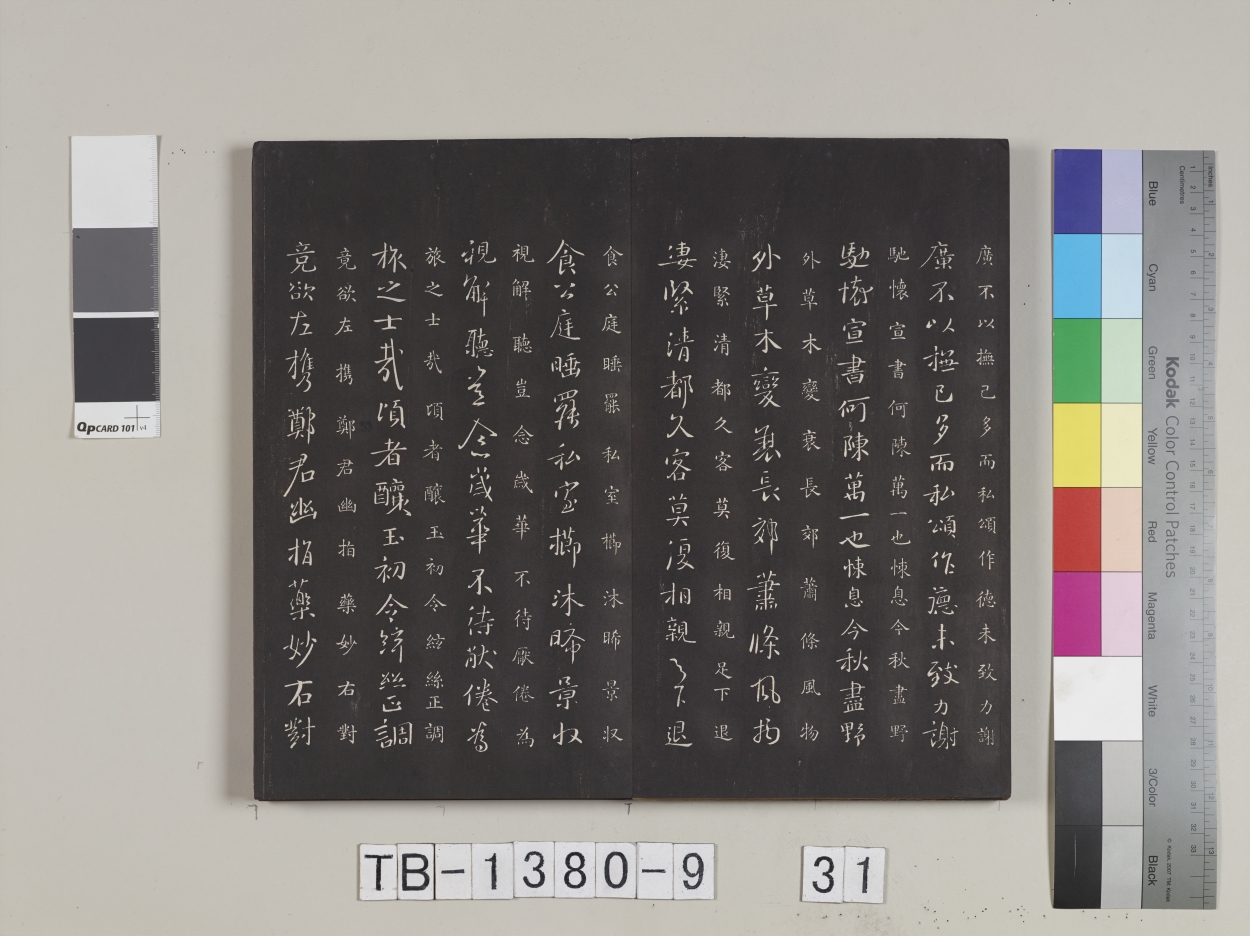 廣不以撫己多而私頌作德未致力謝
廣不以撫已多而私頌作德未致力謝
馳懷宣書何陳萬一也悚息今秋盡野
馳懷宣書何陳萬一也悚息今秋盡野
外草木變衰長郊蕭條風物
外草木變衰長郊蕭條風物
淒緊清都久客莫復相親足下退
淒緊清都久客莫復相親足下退
食公庭睡罷私室櫛沐晞景収
食公庭睡罷私室櫛沐晞景収
視解聽豈念歲華不待厭倦為
視解聽豈念歲華不待厭倦為
旅之士哉頃者釀玉初今綜絲正調
旅之士哉頃者釀玉初令絲正調
竟欲左携鄭君幽指藥妙右對
竟欲左携鄭君幽指藥妙右對
QpCARD 101 v4
Kodak Color Control Patches
Blue
Cyan
Green
Yellow
Red
Magenta
White
3/Color
Black
Inches
Centimetres
© Kodak, 2007 TM: Kodak
TB-1380-9
31